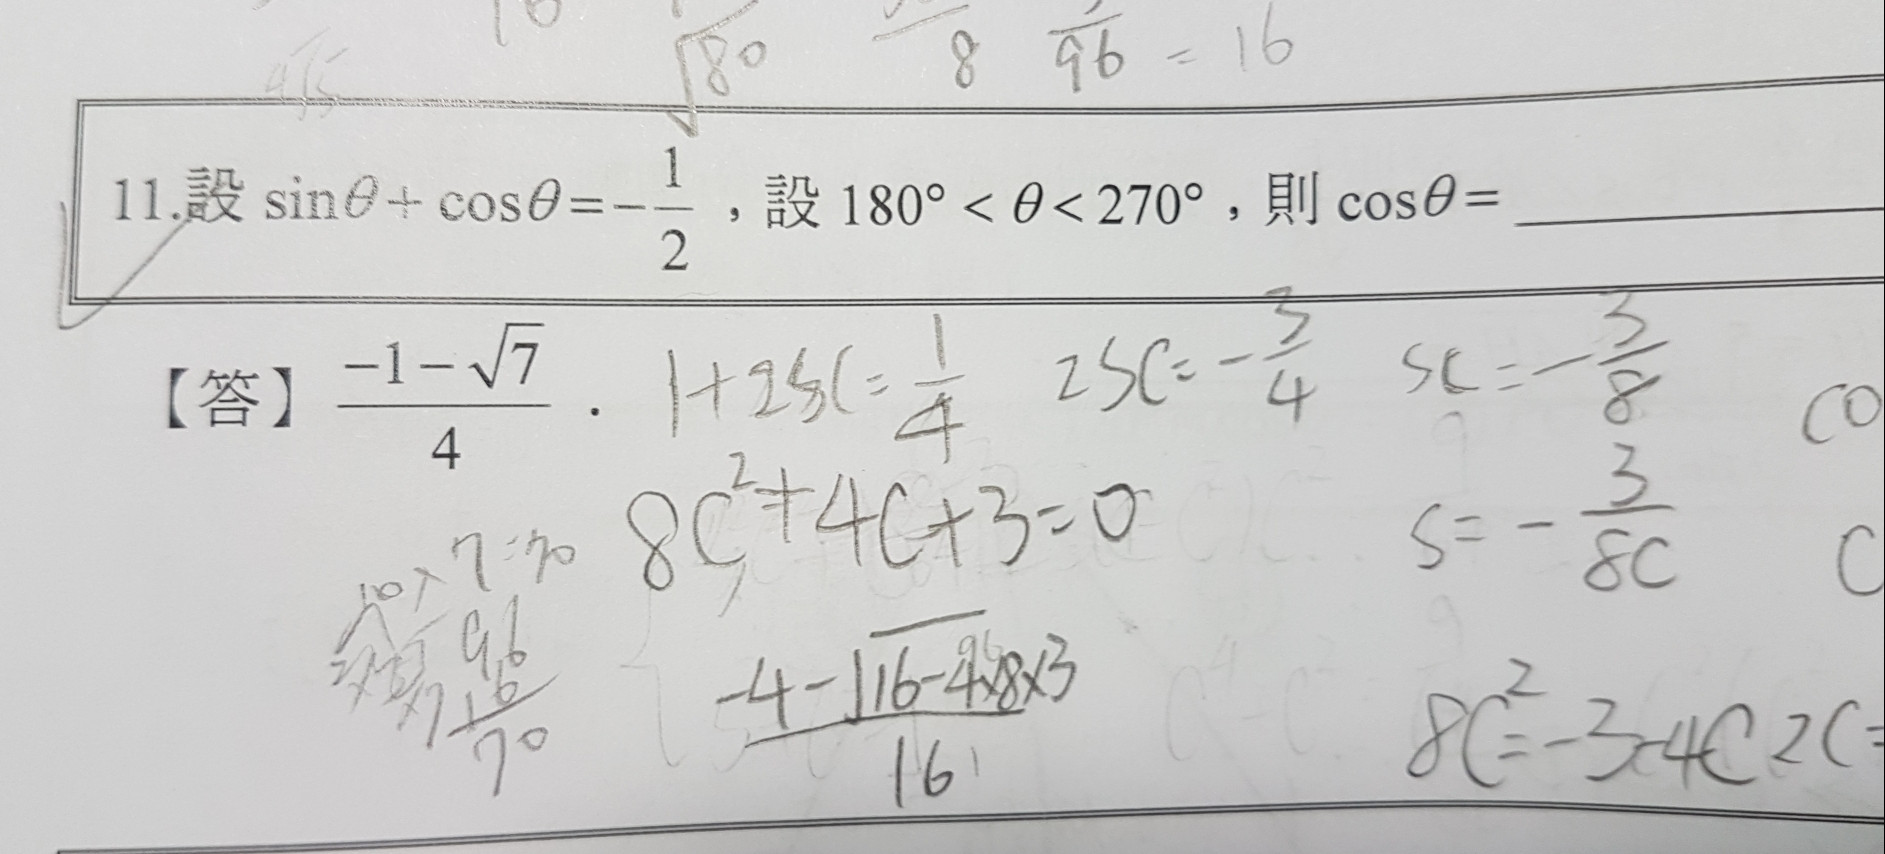 √80 8 96 = 16
11.設 sinθ+cosθ=-1/2，設 180°<θ<270°，則 cosθ=________
【答】(-1-√7)/4．
1+2SC=1/4 2SC=-3/4 SC=-3/8 CO
8C²+4C+3=0 S=-3/8C C
7=70
96
70
(-4-√16-4×8×3)/16
8C²=-3-4C 2C=